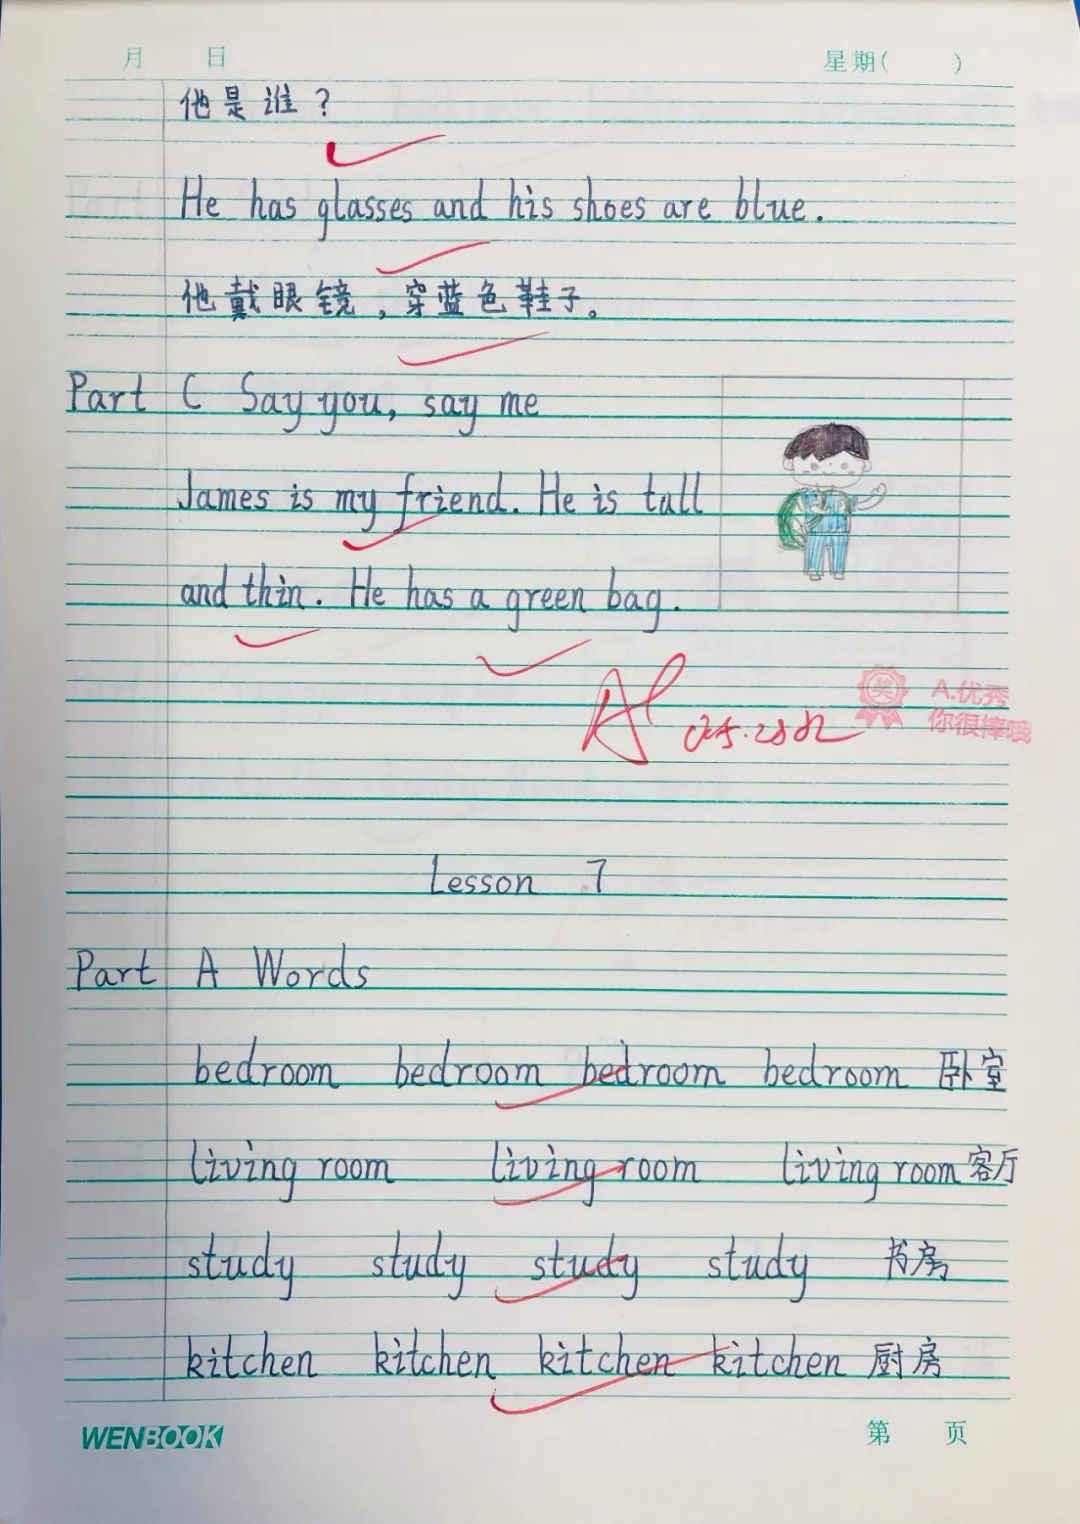 月 日 星期( )
他是谁？
He has glasses and his shoes are blue.
他戴眼镜，穿蓝色鞋子。
Part C Say you, say me
James is my friend. He is tall
and thin. He has a green bag.
A
A.优秀
奖
你很棒哦
Lesson 7
Part A Words
bedroom bedroom bedroom bedroom 卧室
living room living room living room 客厅
study study study study 书房
kitchen kitchen kitchen kitchen 厨房
WENBOOK 第 页